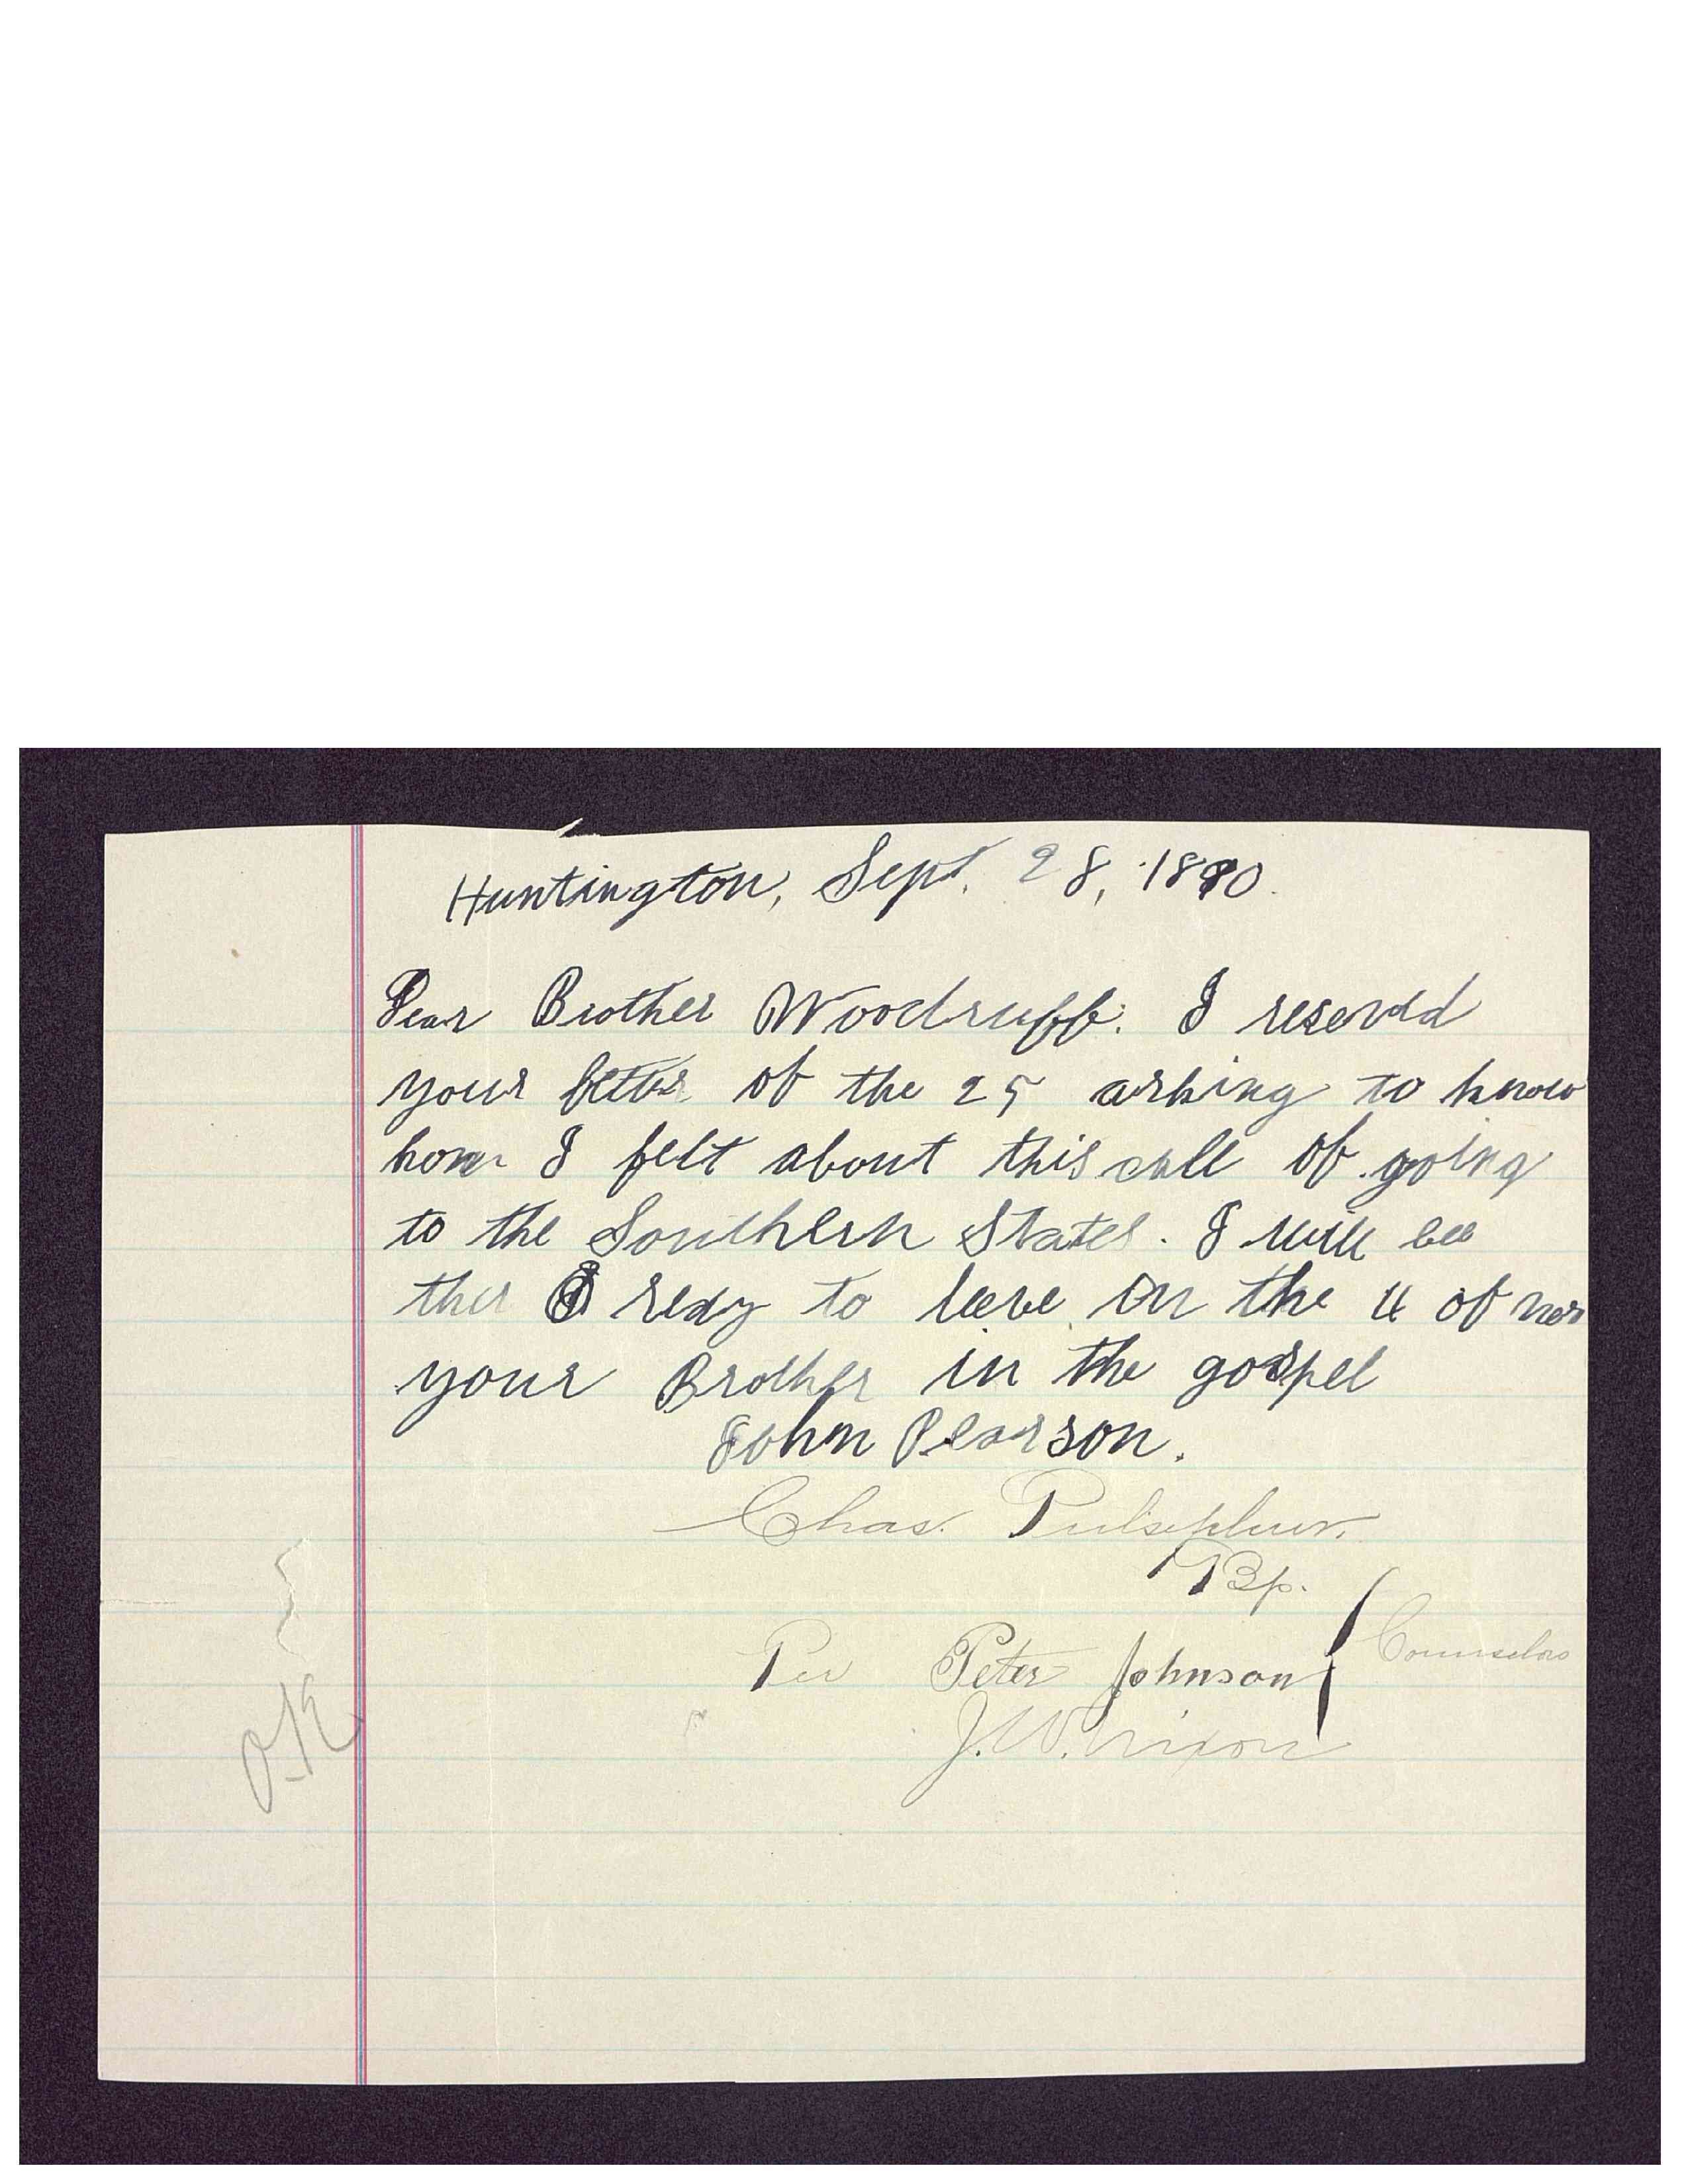 Huntington, Sept. 28, 1890.
Dear Brother Woodruff: I reservd
your letter of the 25 asking to know
how I felt about this call of going
to the Southern States. I will bee
ther redy to leeve on the 4 of nov
your Brother in the gospel
John Pearson.
Chas. Pulsipher.
Bp.
Per Peter Johnson } Counselors
J. W. Nixon
O.K